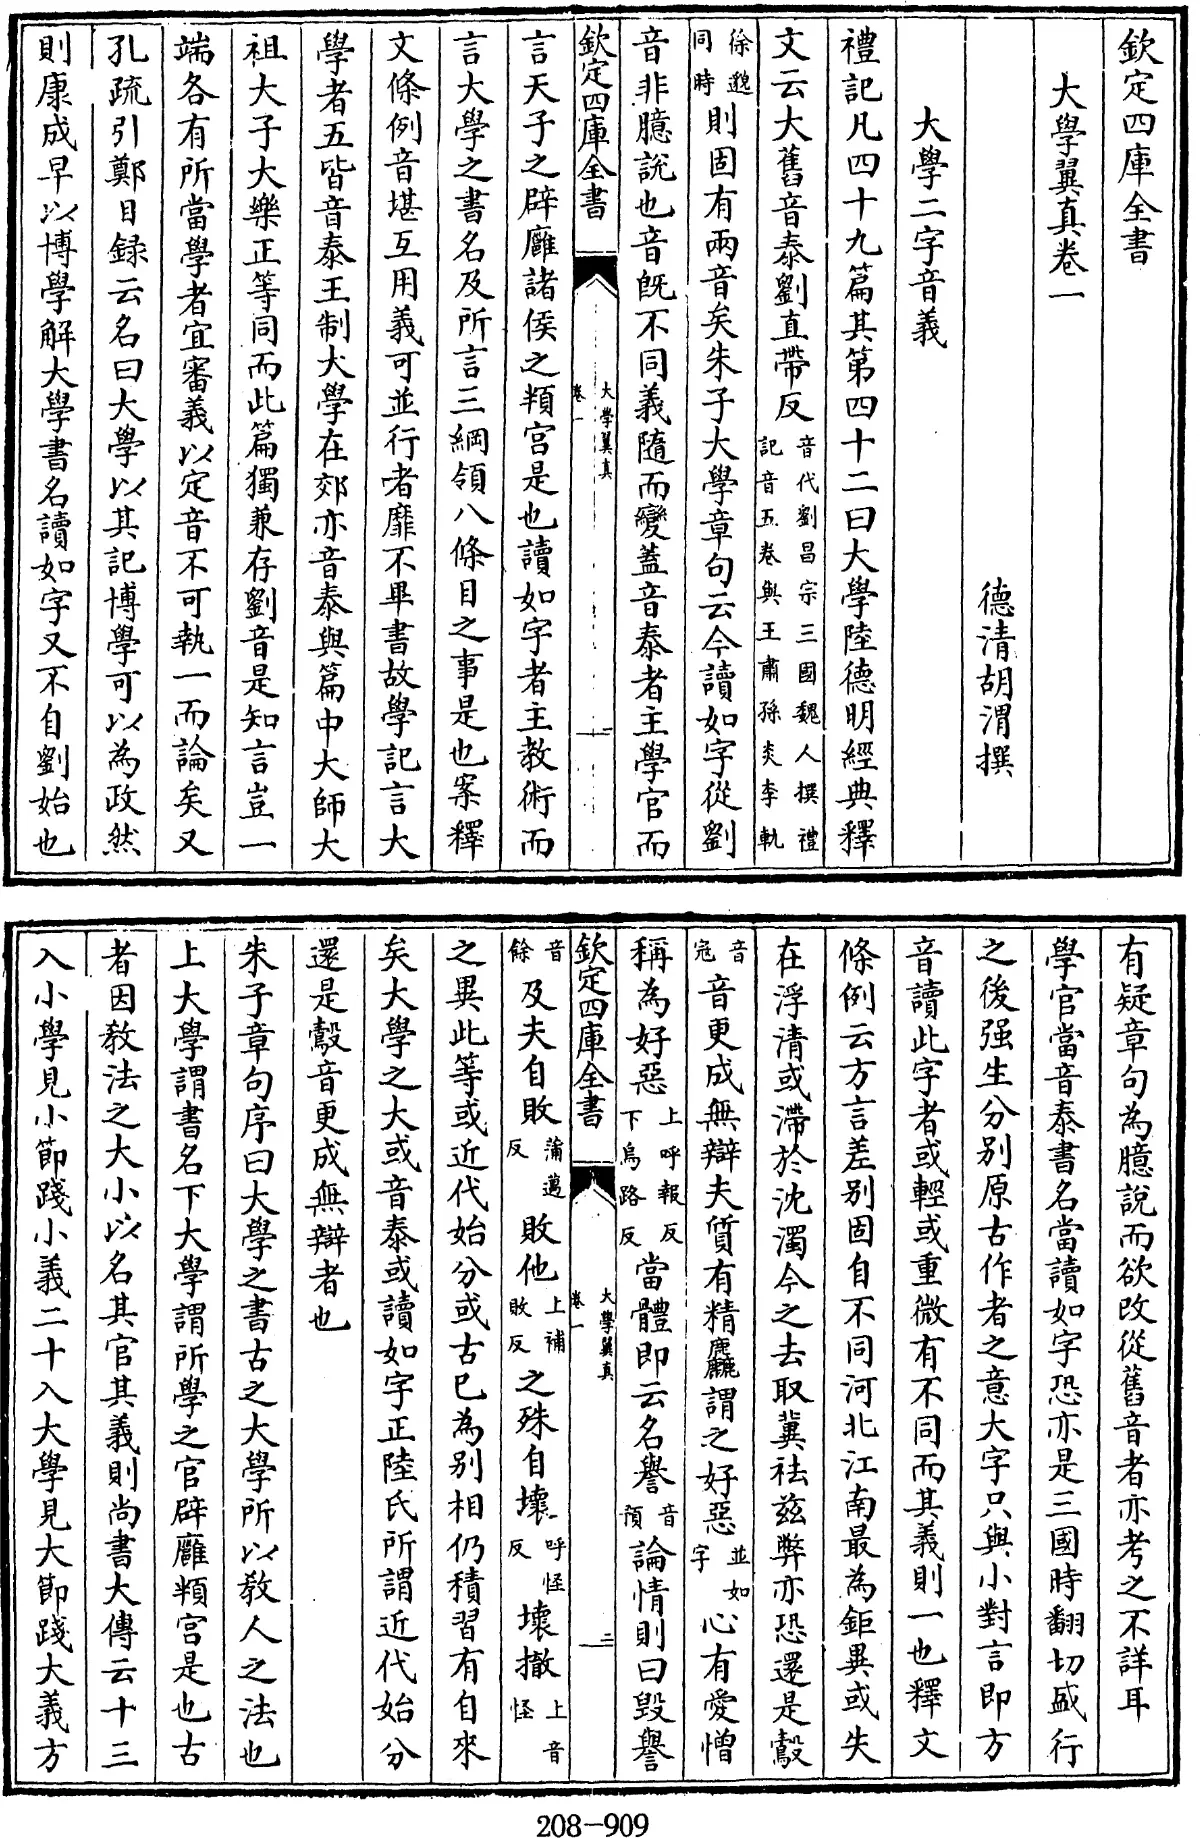 欽定四庫全書
大學翼真卷一
德清胡渭撰
大學二字音義
禮記凡四十九篇其第四十二曰大學陸德明經典釋
文云大舊音泰劉直帶反音代劉昌宗三國魏人撰禮記音五卷與王肅孫炎李軌
徐邈同時則固有兩音矣朱子大學章句云今讀如字從劉
音非臆說也音既不同義隨而變蓋音泰者主學官而
欽定四庫全書
大學翼真
卷一
一
言天子之辟廱諸侯之頖宮是也讀如字者主教術而
言大學之書名及所言三綱領八條目之事是也案釋
文條例音堪互用義可並行者靡不畢書故學記言大
學者五皆音泰王制大學在郊亦音泰與篇中大師大
祖大子大樂正等同而此篇獨兼存劉音是知言豈一
端各有所當學者宜審義以定音不可執一而論矣又
孔疏引鄭目録云名曰大學以其記博學可以為政然
則康成早以博學解大學書名讀如字又不自劉始也
有疑章句為臆說而欲改從舊音者亦考之不詳耳
學官當音泰書名當讀如字恐亦是三國時翻切盛行
之後强生分別原古作者之意大字只與小對言即方
音讀此字者或輕或重微有不同而其義則一也釋文
條例云方言差別固自不同河北江南最為鉅異或失
在浮清或滯於沈濁今之去取冀袪兹弊亦恐還是鷇
音寇音更成無辯夫質有精麤謂之好惡並如字心有愛憎
稱為好惡上呼報反下烏路反當體即云名譽音預論情則曰毀譽
欽定四庫全書
大學翼真
卷一
二
音餘及夫自敗蒲邁反敗他上補敗反之殊自壞呼怪反壞撤上音怪
之異此等或近代始分或古已為別相仍積習有自來
矣大學之大或音泰或讀如字正陸氏所謂近代始分
還是鷇音更成無辯者也
朱子章句序曰大學之書古之大學所以教人之法也
上大學謂書名下大學謂所學之官辟廱頖宮是也古
者因教法之大小以名其官其義則尚書大傳云十三
入小學見小節踐小義二十入大學見大節踐大義方
208-909